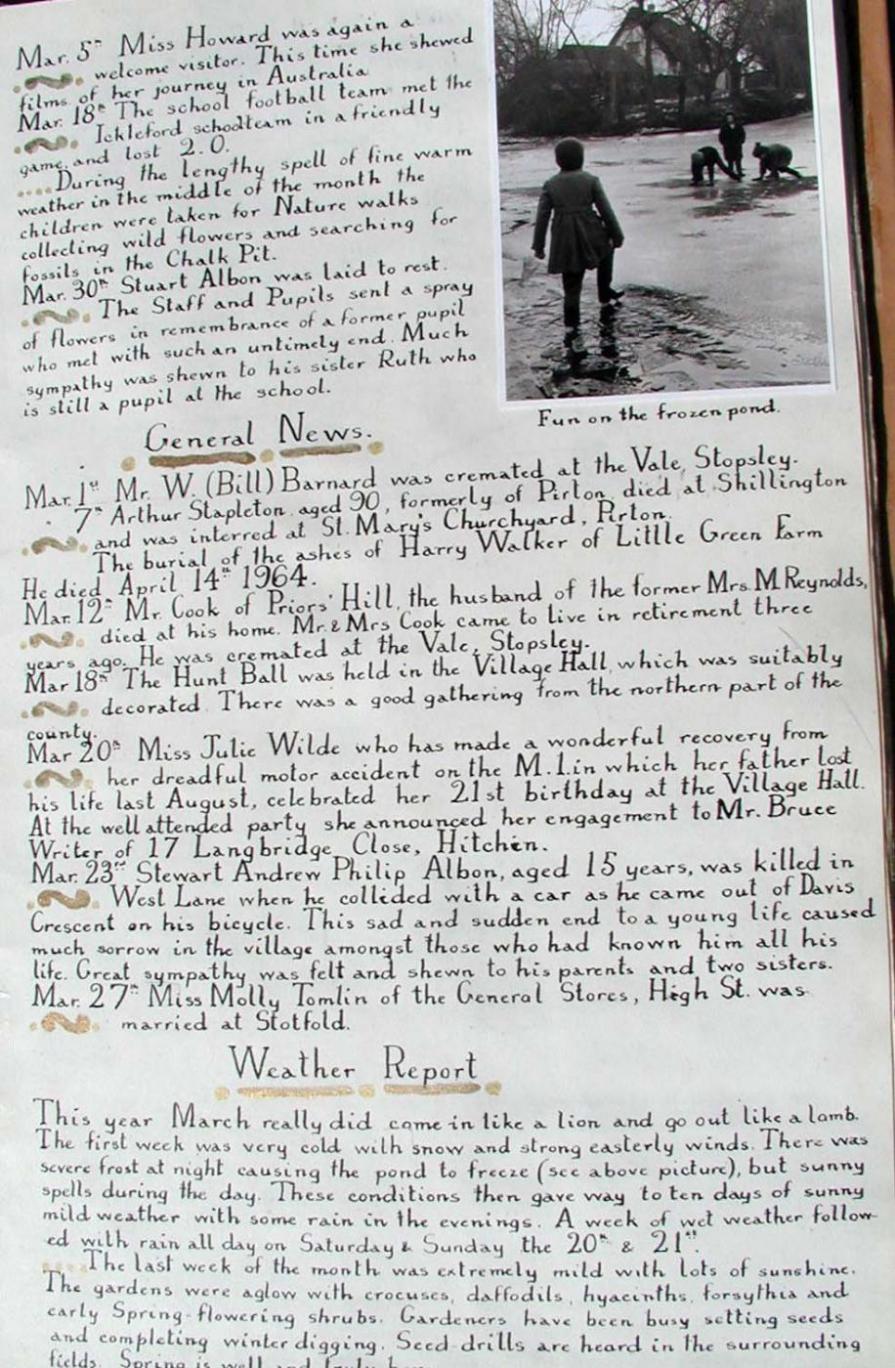 Mar. 5th Miss Howard was again a
welcome visitor. This time she shewed
films of her journey in Australia
Mar. 18th The school football team met the
Ickleford school team in a friendly
game, and lost 2.0.
....During the lengthy spell of fine warm
weather in the middle of the month the
children were taken for Nature walks
collecting wild flowers and searching for
fossils in the Chalk Pit.
Mar. 30th Stuart Albon was laid to rest.
The Staff and Pupils sent a spray
of flowers in remembrance of a former pupil
who met with such an untimely end. Much
sympathy was shewn to his sister Ruth who
is still a pupil at the school.
Fun on the frozen pond.
General News.
Mar. 1st Mr. W. (Bill) Barnard was cremated at the Vale, Stopsley.
7th Arthur Stapleton aged 90, formerly of Pirton, died at Shillington
and was interred at St. Mary's Churchyard, Pirton.
The burial of the ashes of Harry Walker of Little Green Farm
He died April 14th 1964.
Mar. 12th Mr. Cook of Priors' Hill, the husband of the former Mrs. M. Reynolds,
died at his home. Mr. & Mrs Cook came to live in retirement three
years ago. He was cremated at the Vale, Stopsley.
Mar 18th The Hunt Ball was held in the Village Hall, which was suitably
decorated. There was a good gathering from the northern part of the
county.
Mar 20th Miss Julie Wilde who has made a wonderful recovery from
her dreadful motor accident on the M.1. in which her father lost
his life last August, celebrated her 21st birthday at the Village Hall.
At the well attended party she announced her engagement to Mr. Bruce
Writer of 17 Langbridge Close, Hitchin.
Mar. 23rd Stewart Andrew Philip Albon, aged 15 years, was killed in
West Lane when he collided with a car as he came out of Davis
Crescent on his bicycle. This sad and sudden end to a young life caused
much sorrow in the village amongst those who had known him all his
life. Great sympathy was felt and shewn to his parents and two sisters.
Mar. 27th Miss Molly Tomlin of the General Stores, High St. was
married at Stotfold.
Weather Report
This year March really did come in like a lion and go out like a lamb.
The first week was very cold with snow and strong easterly winds. There was
severe frost at night causing the pond to freeze (see above picture), but sunny
spells during the day. These conditions then gave way to ten days of sunny
mild weather with some rain in the evenings. A week of wet weather follow-
ed with rain all day on Saturday & Sunday the 20th & 21st.
....The last week of the month was extremely mild with lots of sunshine.
The gardens were aglow with crocuses, daffodils, hyacinths, forsythia and
early Spring-flowering shrubs. Gardeners have been busy setting seeds
and completing winter digging. Seed-drills are heard in the surrounding
fields. Spring is well and